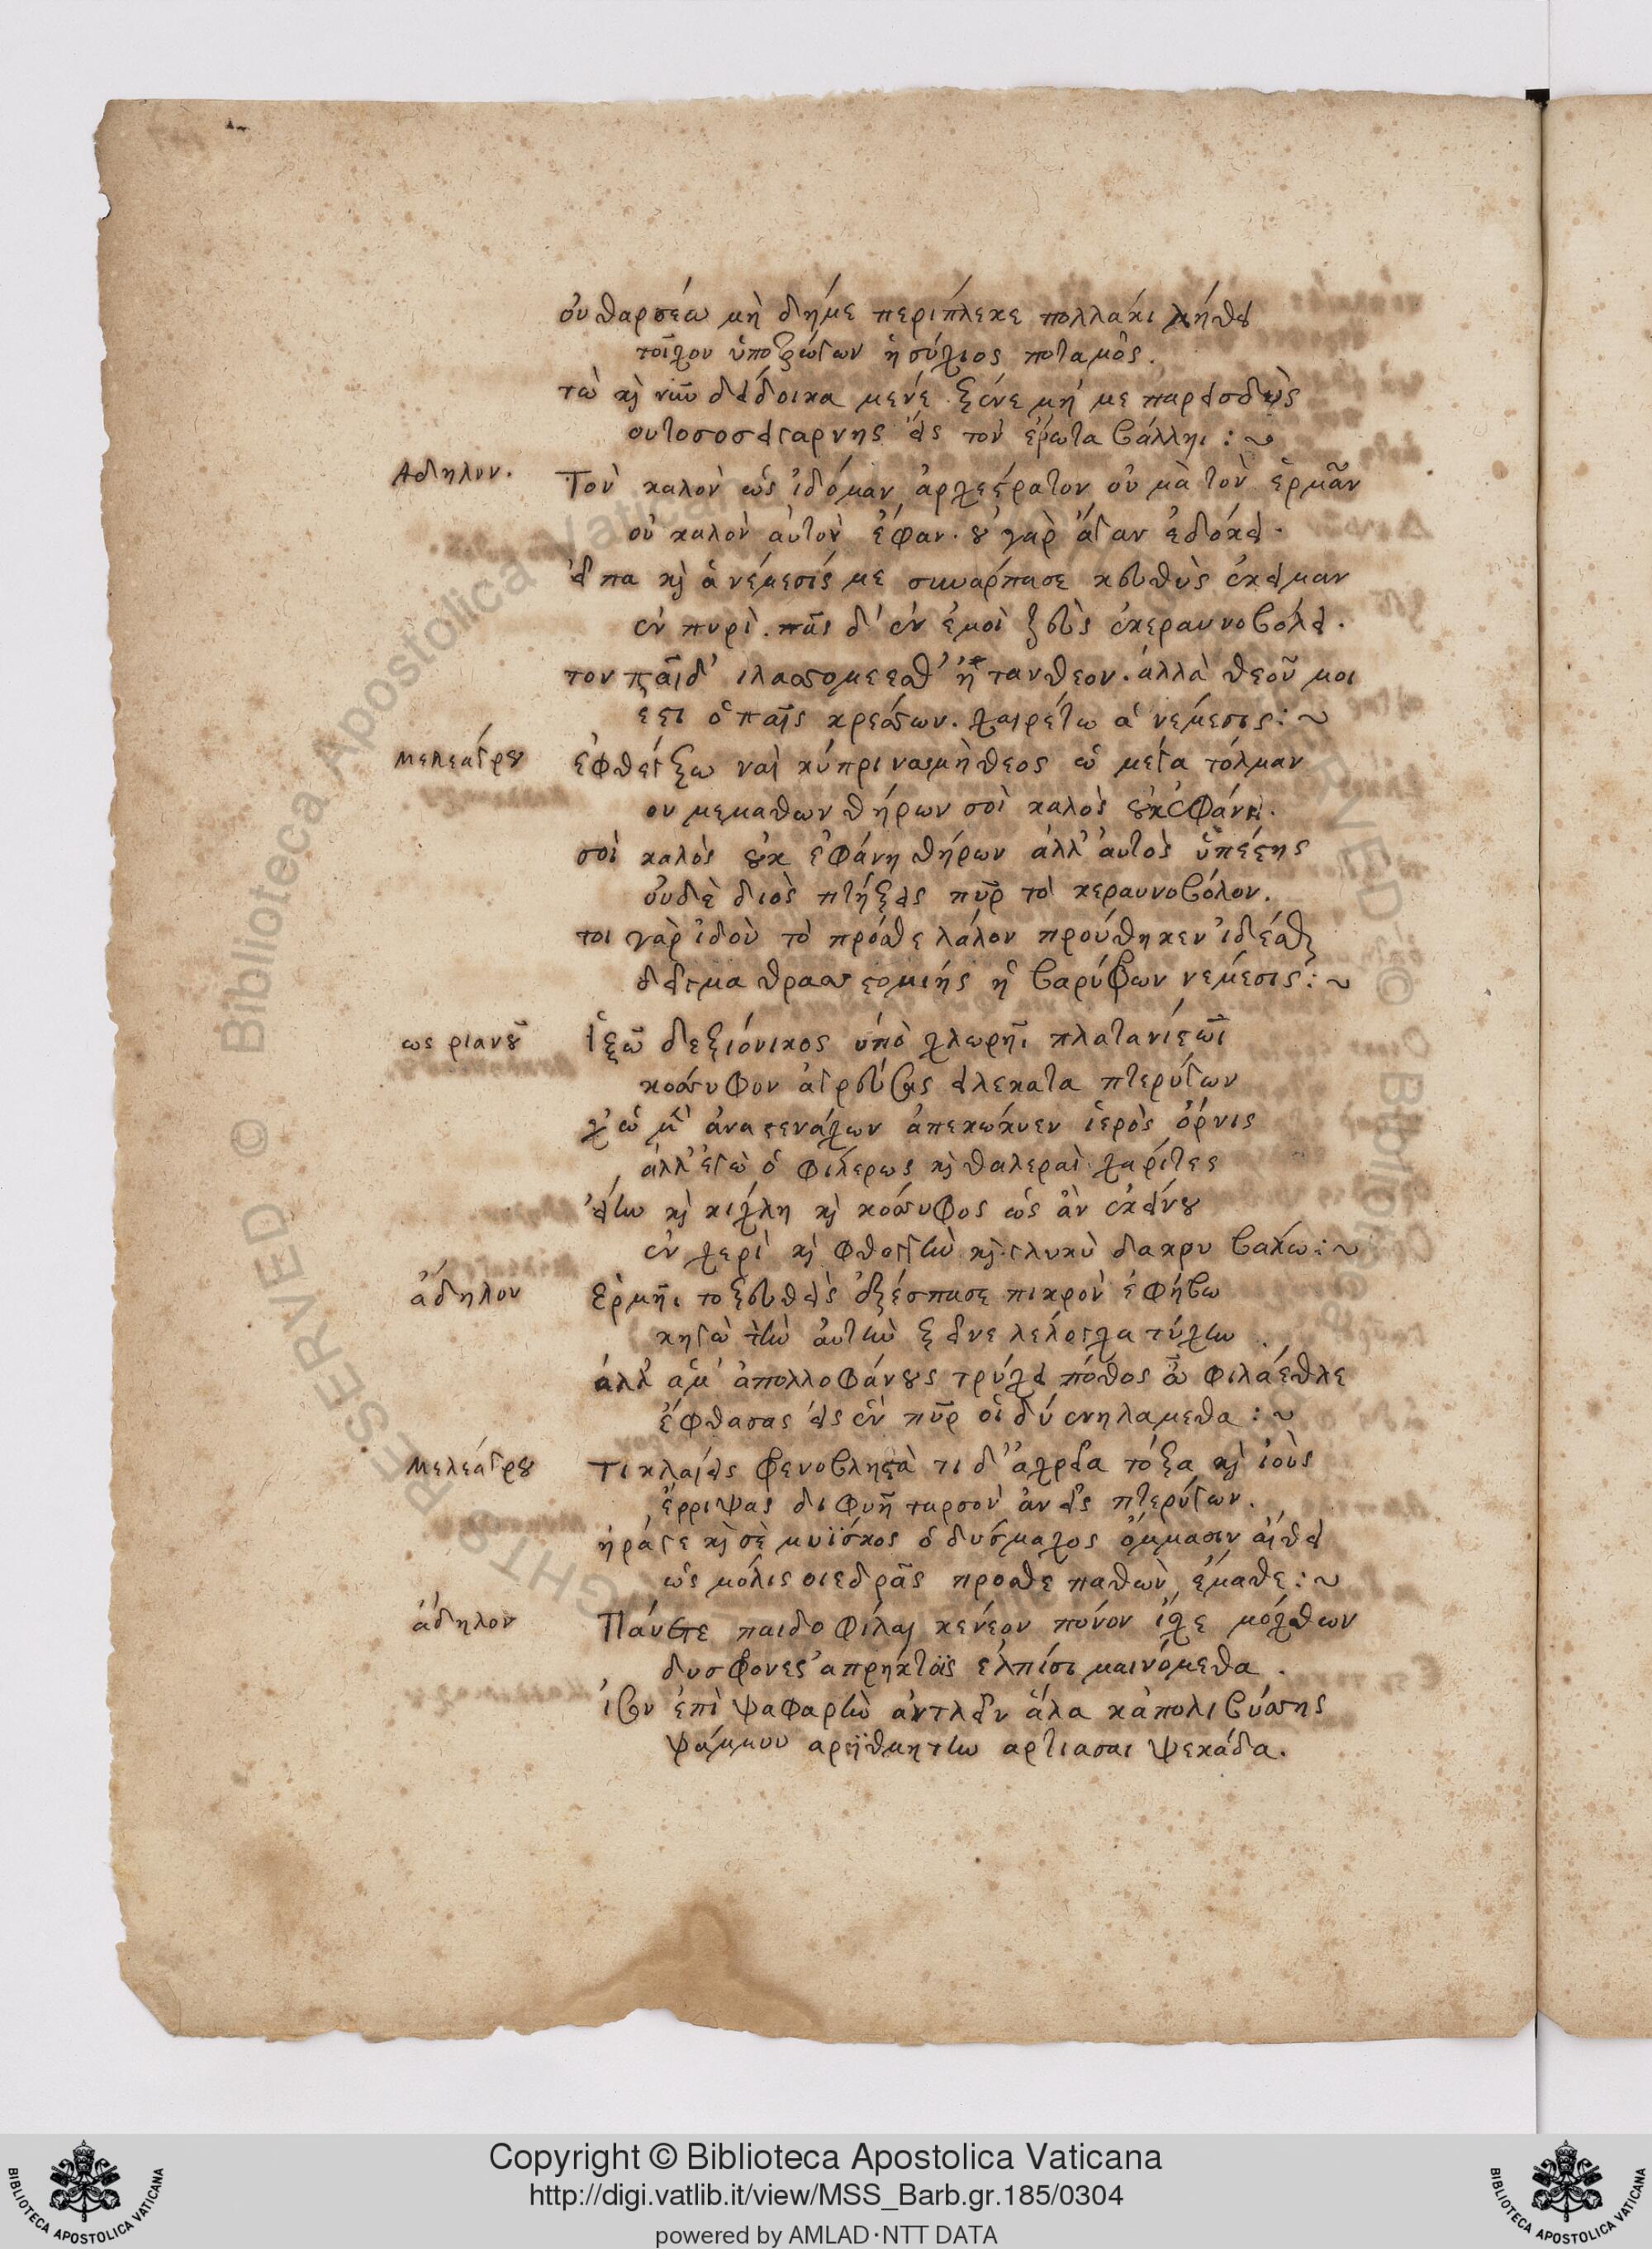 οὐ θαρσέω μὴ δήμε περιπλεκε πολλάκι λήθει
τοῖχον ὑποτρώγων ἡσύχιος ποταμὸς.
τὼ καὶ νῦν δείδοικα μενέξενε μή με παρεισδὺς
ουτοσοσειγαρνης εἰς τὸν ἔρωτα βάλληι :~
Αδηλον.
Τὸν καλὸν ὡς ἰδόμαν ἀρχεστρατον οὐ μὰ τὸν ἑρμᾶν
οὐ καλὸν αὐτὸν ἔφαν. οὐ γὰρ ἄγαν ἐδόκει.
εἶπα καὶ ἁ νέμεσίς με συναρπασε κευθὺς ἐκείμαν
ἐν πυρὶ. πᾶς δ' ἐν ἐμοὶ ζεὺς ἐκεραυνοβόλει.
τον παῖδ' ιλασσομεσθ' ἢ τανθεον. ἀλλὰ θεοῦ μοι
εστι ὁ παῖς κρεάσσων. χαιρέτω ἁ νέμεσις :~
Μελεάγρου
ἐφθέγξω ναὶ κύπριν ἁ μὴ θεος ὦ μεγα τόλμαν
ον μεμαθων θήρων σοὶ καλὸς οὐκ ἐφάνη.
σοὶ καλὸς οὐκ ἐφάνη θήρων ἀλλ' αὐτὸς ὑπέστης
οὐδὲ διὸς πτήξεις πῦρ τὸ κεραυνοβόλον.
τοι γὰρ ἰδοὺ τὸ πρόσθε λάλον προύθηκεν ἰδέσθαι
δεῖγμα θρασυστομιής ἡ βαρύφρων νέμεσις :~
ως ριανοῦ
Ἰξῶ δεξιόνικος ὑπὸ χλωρῆι πλατανίστωι
κόσσυφον ἀγρεύσας εἷλε κατα πτερύγων
χὠ μὲν ἀναστενάχων ἀπεκώκυεν ἱερὸς ὄρνις
ἀλλ' ἐγὼ ὁ φίλερως καὶ θαλεραὶ χαρίτες
εἴην καὶ κίχλη καὶ κόσσυφος ὡς ἂν ἐκείνου
ἐν χερὶ καὶ φθογγὴν καὶ γλυκὺ δακρυ βαλω :~
ἄδηλον
Ερμῆι τοξευθεὶς ἐξέσπασε πικρὸν ἐφήβω
κηγὼ τὴν αὐτὴν ξεῖνε λέλογχα τύχην
ἀλλ' ἅμ' ἀπολλοφάνους τρύχει πόθος ὦ φιλάεθλε
ἔφθασας εἰς ἓν πῦρ οἱ δύ ἐνηλαμεθα :~
Μελεάγρου
Τι κλαίεις φρενοβληστὰ τι δ' ἄγρια τόξα καὶ ἰοὺς
ἔρριψας διφυῆ ταρσὸν ἀνεὶς πτερύγων.
ἦράγε καὶ σὲ μυΐσκος ὁ δύσμαχος ὄμμασιν αἴθει
ὡς μόλις οιεδρᾶς προσθε παθὼν ἔμαθε :~
ἄδηλον
Παύετε παιδοφίλαι κενεον πόνον ἴσχε μόχθων
δυσφρονες ἀπρήκτοις ἐλπίσι μαινόμεθα.
ἶσον ἐπὶ ψαφαρὴν ἀντλεῖν ἅλα κἀπολιβύσσης
ψάμμου αρηϊθμητην αρτιασαι ψεκάδα.
Copyright © Biblioteca Apostolica Vaticana
http://digi.vatlib.it/view/MSS_Barb.gr.185/0304
powered by AMLAD·NTT DATA